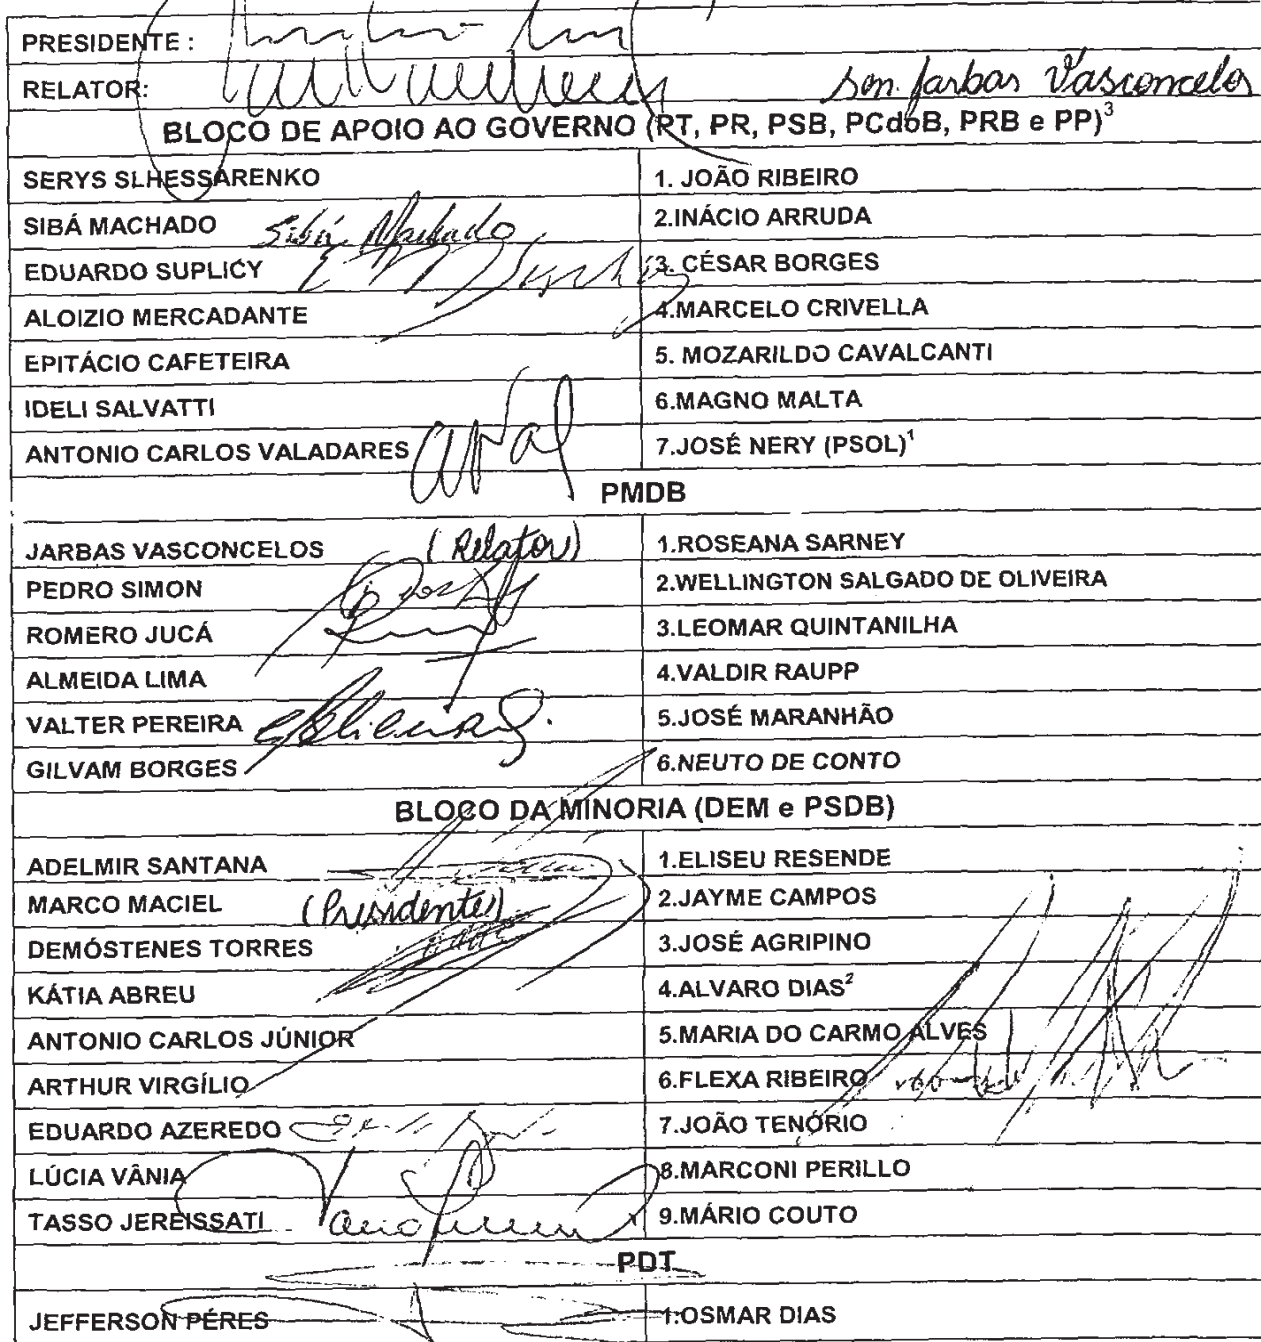 PRESIDENTE :
RELATOR: Sen. Jarbas Vasconcelos
BLOCO DE APOIO AO GOVERNO (PT, PR, PSB, PCdoB, PRB e PP)³
SERYS SLHESSARENKO 1. JOÃO RIBEIRO
SIBÁ MACHADO Sibá Machado 2.INÁCIO ARRUDA
EDUARDO SUPLICY 3. CÉSAR BORGES
ALOIZIO MERCADANTE 4.MARCELO CRIVELLA
EPITÁCIO CAFETEIRA 5. MOZARILDO CAVALCANTI
IDELI SALVATTI 6.MAGNO MALTA
ANTONIO CARLOS VALADARES 7.JOSÉ NERY (PSOL)¹
PMDB
JARBAS VASCONCELOS (Relator) 1.ROSEANA SARNEY
PEDRO SIMON 2.WELLINGTON SALGADO DE OLIVEIRA
ROMERO JUCÁ 3.LEOMAR QUINTANILHA
ALMEIDA LIMA 4.VALDIR RAUPP
VALTER PEREIRA 5.JOSÉ MARANHÃO
GILVAM BORGES 6.NEUTO DE CONTO
BLOCO DA MINORIA (DEM e PSDB)
ADELMIR SANTANA 1.ELISEU RESENDE
MARCO MACIEL (Presidente) 2.JAYME CAMPOS
DEMÓSTENES TORRES 3.JOSÉ AGRIPINO
KÁTIA ABREU 4.ALVARO DIAS²
ANTONIO CARLOS JÚNIOR 5.MARIA DO CARMO ALVES
ARTHUR VIRGÍLIO 6.FLEXA RIBEIRO
EDUARDO AZEREDO 7.JOÃO TENÓRIO
LÚCIA VÂNIA 8.MARCONI PERILLO
TASSO JEREISSATI 9.MÁRIO COUTO
PDT
JEFFERSON PÉRES 1.OSMAR DIAS